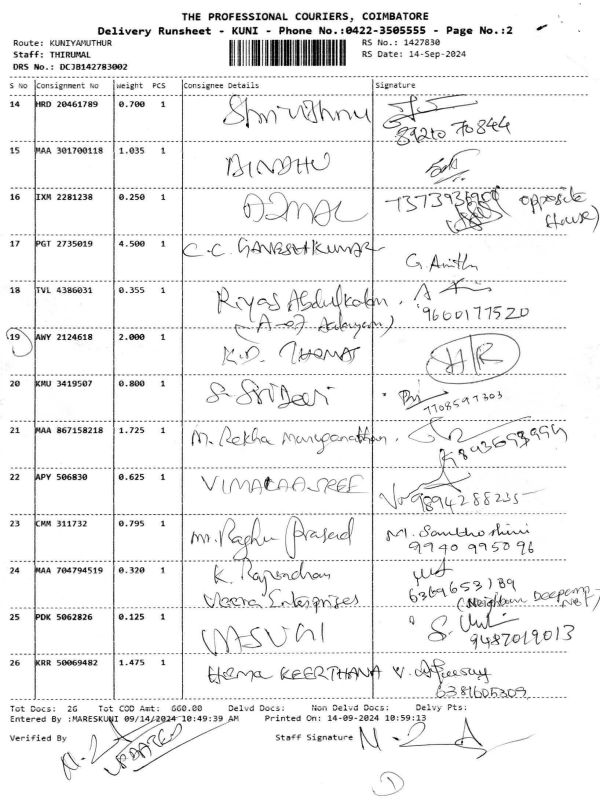 THE PROFESSIONAL COURIERS, COIMBATORE
Delivery Runsheet - KUNI - Phone No.:0422-3505555 - Page No.:2
Route: KUNIYAMUTHUR RS No.: 1427830
Staff: THIRUMAL RS Date: 14-Sep-2024
DRS No.: DCJB142783002
S No Consignment No Weight PCS Consignee Details Signature
14 HRD 20461789 0.700 1 Shri Vishnu
89210 70844
15 MAA 301700118 1.035 1 BINDHU
16 IXM 2281238 0.250 1 AJMAL (opposite
House)
17 PGT 2735019 4.500 1 C.C. GANESHKUMAR
G Anitha
18 TVL 4386031 0.355 1 Riyas Abdulkalam.
9600177520
19 AWY 2124618 2.000 1 K.D. THOMAS H/R
20 KMU 3419507 0.800 1 S. SRIDEVI
7708597303
21 MAA 867158218 1.725 1 M. Rekha Muruganathan.
22 APY 506830 0.625 1 VIMALAASREE 9894288235
23 CMM 311732 0.795 1 Mr. Raghu Prasad M. Santhoshini
9940 995096
24 MAA 704794519 0.320 1 K. Rajendran
Veena Enterprises 6369653189
(Neighbour
25 PDK 5062826 0.125 1 VASUKI
9487019013
26 KRR 50069482 1.475 1 Hema KEERTHANA V.
6381605309
Tot Docs: 26 Tot COD Amt: 660.00 Delvd Docs: Non Delvd Docs: Delvy Pts:
Entered By :MARESKUNI 09/14/2024 10:49:39 AM Printed On: 14-09-2024 10:59:13
Verified By Staff Signature
UPDATED
1